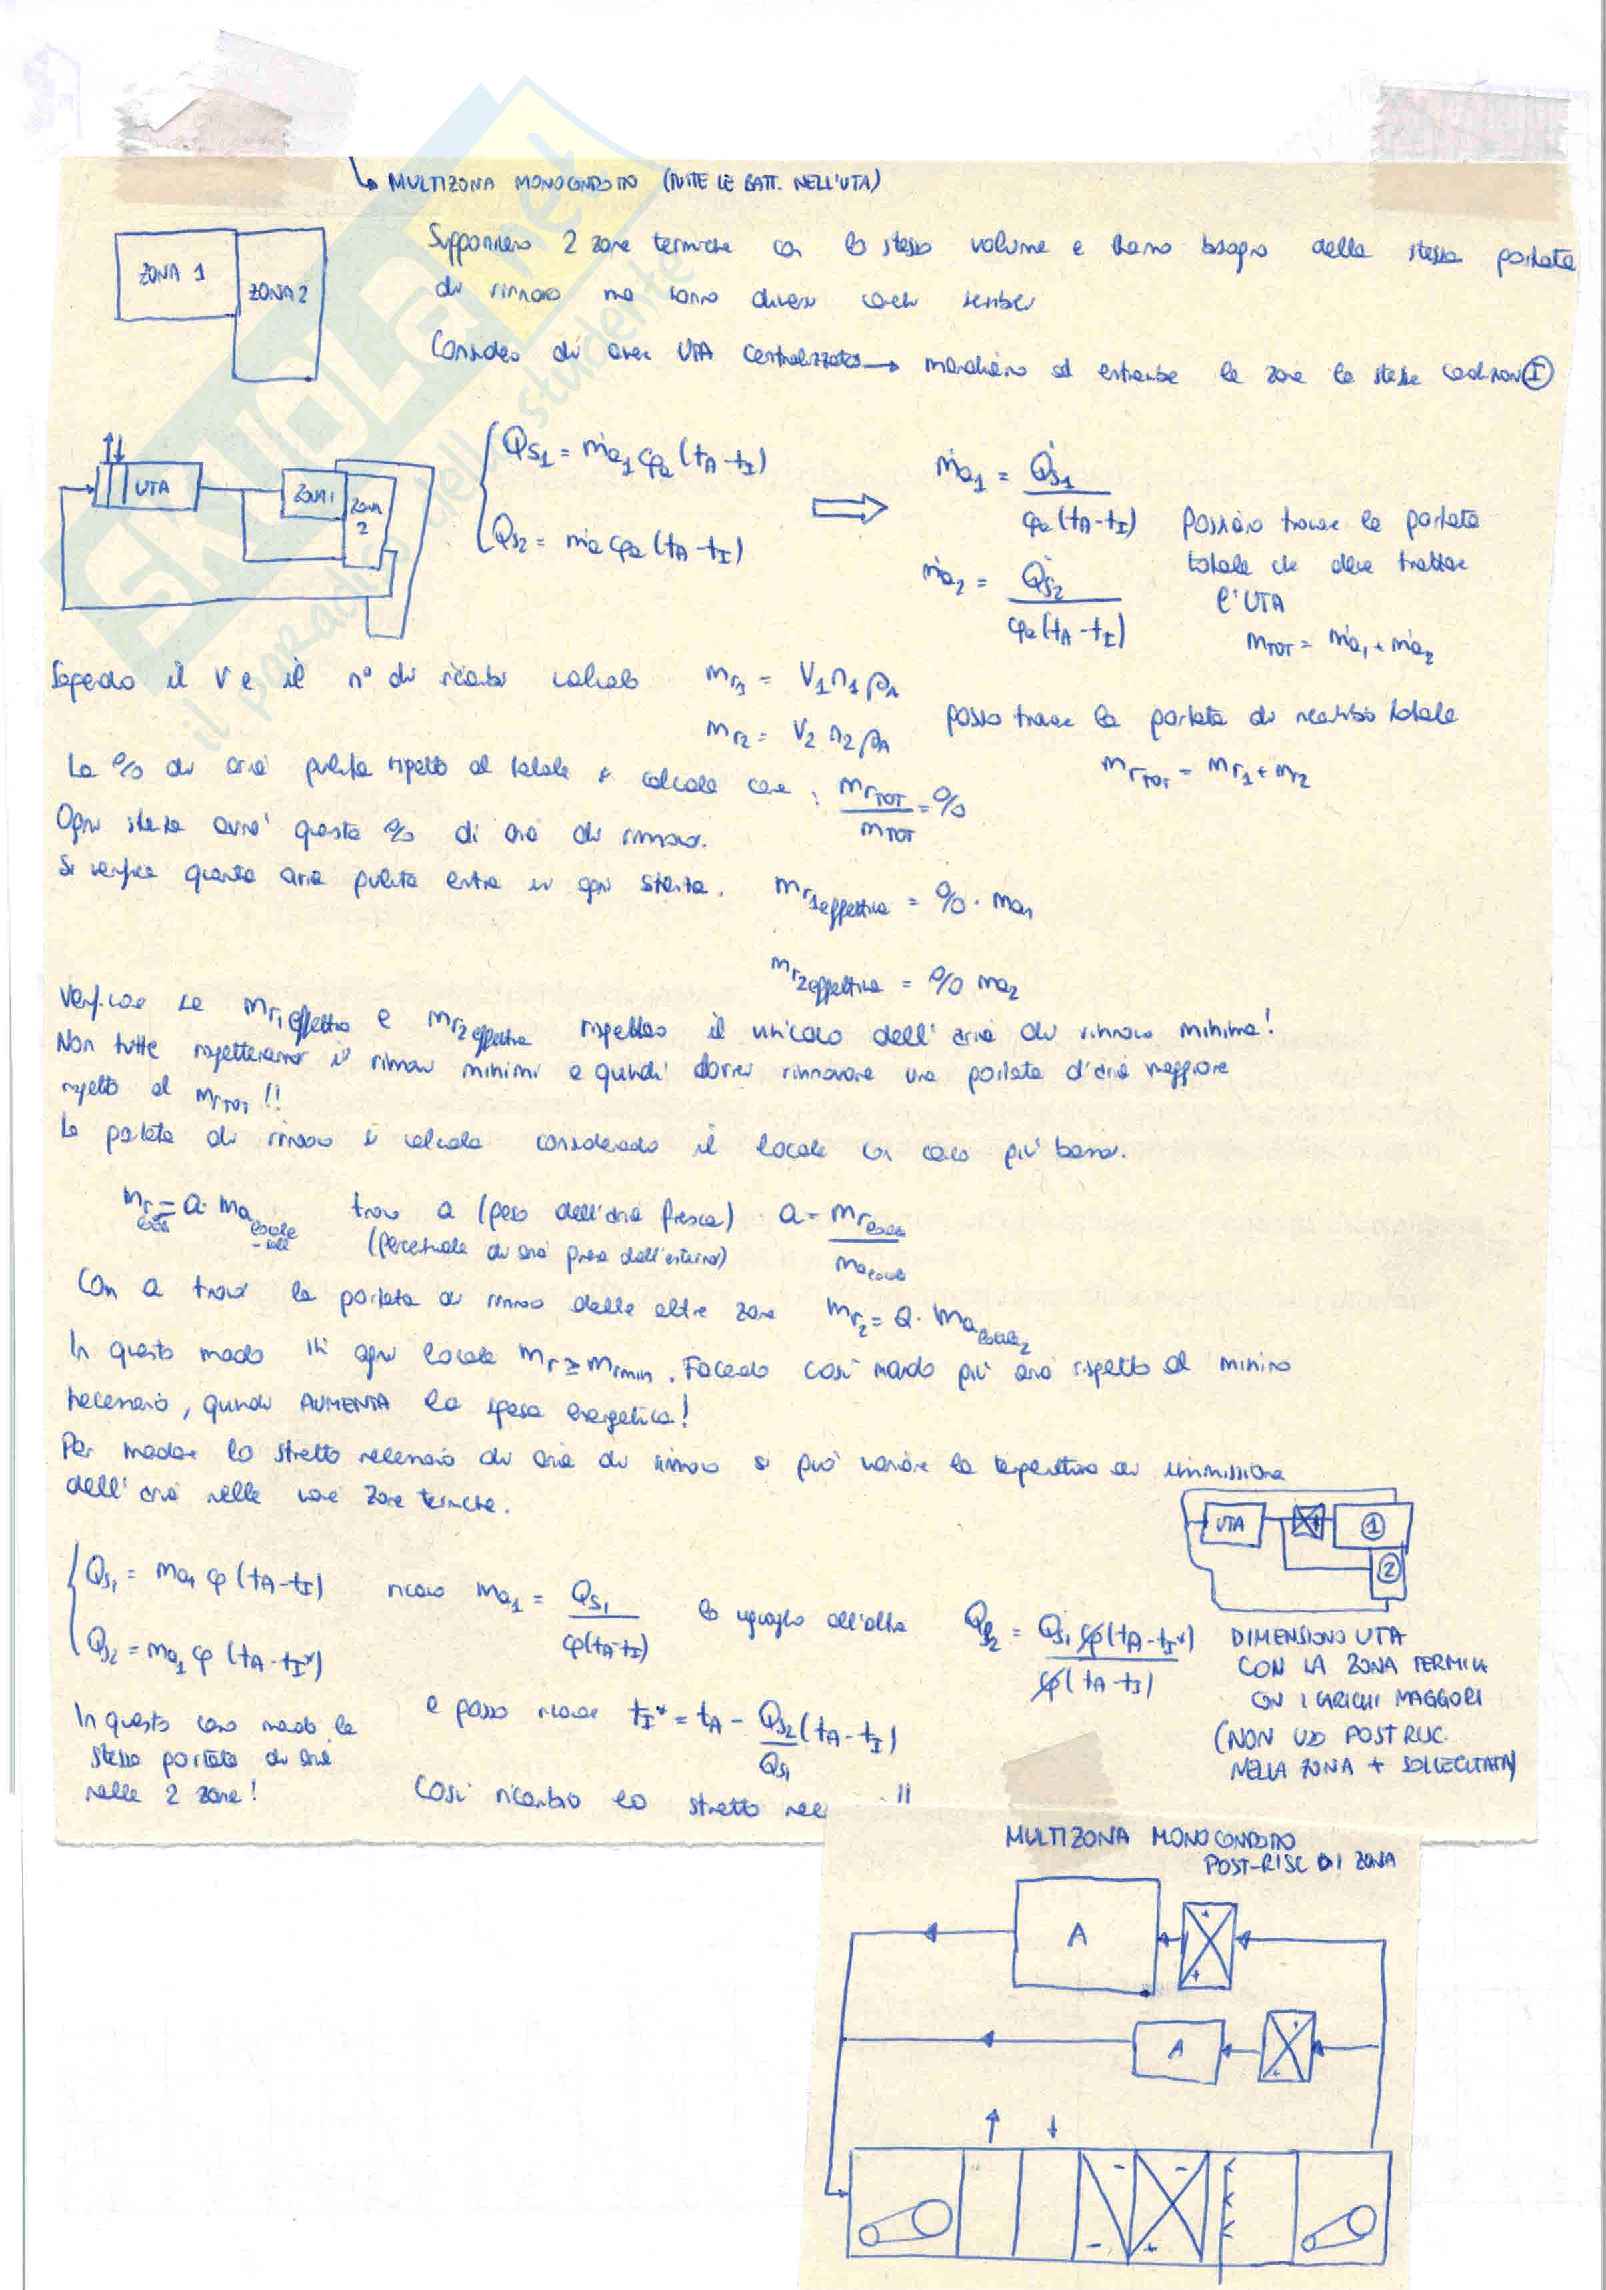 ↳ MULTIZONA MONOCONDOTTO (TUTTE LE BATT. NELL'UTA)
ZONA 1
ZONA 2
Supponiamo 2 zone termiche con lo stesso volume e hanno bisogno della stessa portata
di rinnovo ma hanno diversi carichi sensibili
Considero di avere UTA centralizzata → mandiamo ad entrambe le zone le stesse condizioni Ⓘ
UTA
ZONA 1
ZONA 2
Qs1 = ṁa1 cpa (tA - tI)
Qs2 = ṁa cpa (tA - tI)
⇒
ṁa1 = Q̇s1 / cpa (tA - tI)
ṁa2 = Q̇s2 / cpa (tA - tI)
Possiamo trovare la portata
totale che deve trattare
l'UTA
mTOT = ṁa1 + ṁa2
Sapendo il V e il n° di ricambi calcolo mr1 = V1 n1 ρA
mr2 = V2 n2 ρA
posso trovare la portata di ricambio totale
mrTOT = mr1 + mr2
La % di aria pulita rispetto al totale si calcola come : mrTOT / mTOT = %
Ogni stanza avra' questa % di aria di rinnovo.
Si verifica quanta aria pulita entra in ogni stanza. mr1 effettiva = % · ma1
mr2 effettiva = % ma2
Verificare se mr1 effettiva e mr2 effettiva rispettano il vincolo dell'aria di rinnovo minima!
Non tutte rispetteranno i rinnovi minimi e quindi dovrei rinnovare una portata d'aria maggiore
rispetto al mrTOT !!
La portata di rinnovo si calcola considerando il locale con carico più basso.
mr = a · ma locale
trovo a (peso dell'aria fresca) a = mr locale / ma locale
(percentuale di aria presa dall'esterno)
Con a trovo la portata di rinnovo delle altre zone mr2 = a · ma locale2
In questo modo in ogni locale mr ≥ mrmin. Facendo così mando più aria rispetto al minimo
necessario, quindi AUMENTA la spesa energetica!
Per mandare lo stretto necessario di aria di rinnovo si può variare la temperatura di immissione
dell'aria nelle varie zone termiche.
UTA
1
2
Qs1 = ma1 cp (tA - tI)
Qs2 = ma1 cp (tA - tI*)
ricavo ma1 = Qs1 / cp(tA - tI)
lo uguaglio all'altra
Qs2 = Qs1 cp (tA - tI*) / cp (tA - tI)
DIMENSIONO UTA
CON LA ZONA TERMICA
CON I CARICHI MAGGIORI
(NON USO POST RISC.
NELLA ZONA + SOLLECITATA)
In questo caso mando la
stessa portata di aria
nelle 2 zone!
e posso ricavare tI* = tA - Qs2 / Qs1 (tA - tI)
Così ricambio lo stretto nec !!
MULTIZONA MONOCONDOTTO
POST-RISC DI ZONA
A
A
SKUOLA.net
il paradiso dello studente